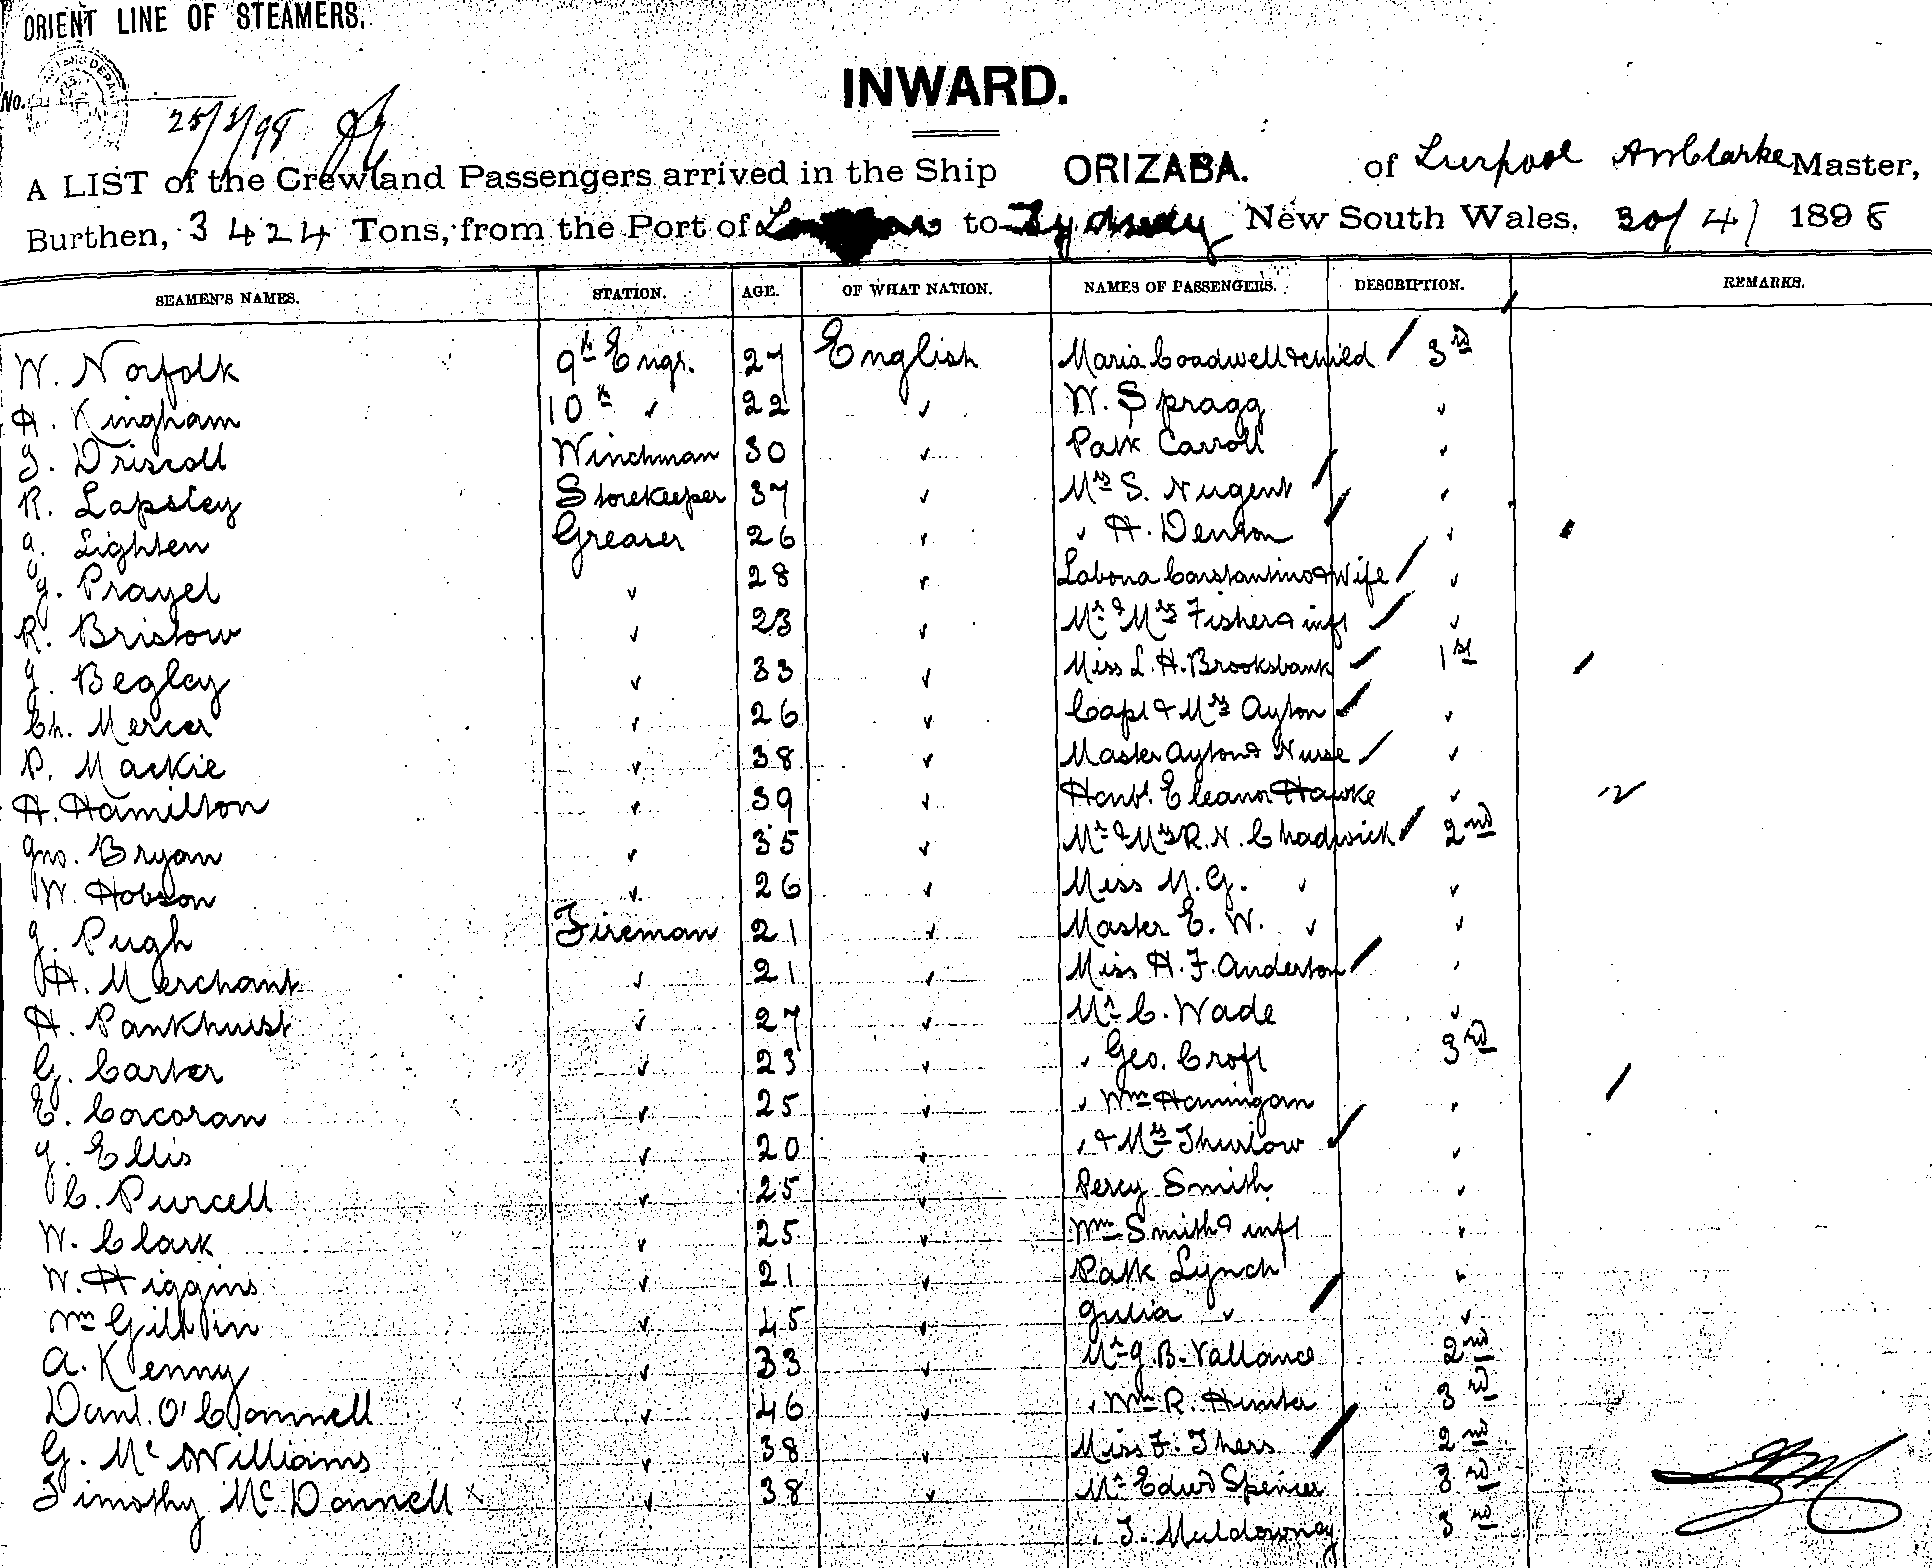 ORIENT LINE OF STEAMERS.
No.
INWARD.
A LIST of the Crew and Passengers arrived in the Ship ORIZABA. of Liverpool Master,
Burthen, 3424 Tons, from the Port of to Sydney New South Wales, 30/4/ 1898
SEAMEN'S NAMES. STATION. AGE. OF WHAT NATION. NAMES OF PASSENGERS. DESCRIPTION. REMARKS.
W. Norfolk 9th Engr. 27 English Maria Coadwell & child 3rd
H. Kingham 10th " 22 " W. Spragg "
J. Driscoll Winchman 30 " Patk Carroll "
R. Lapsley Storekeeper 37 " Mrs S. Nugent "
Lighten Greaser 26 " " H. Denton "
J. Prayel " 28 " Labona Constantino & Wife "
R. Bristow " 23 " Mr & Mrs Fisher & inft "
J. Begley " 33 " Miss L. H. Brooksbank 1st
Ch. Mercer " 26 " Capt & Mrs Ayton "
P. Mackie " 38 " Master Ayton & Nurse "
H. Hamilton " 39 " Honbl. Eleanor Hawke "
Jno. Bryan " 35 " Mr & Mrs R. N. Chadwick 2nd
W. Hobson " 26 " Miss M. G. " "
J. Pugh Fireman 21 " Master E. W. " "
H. Merchant " 21 " Miss H. F. Anderton "
H. Pankhurst " 27 " Mr C. Wade "
G. Carter " 23 " " Geo. Croft 3rd
E. Corcoran " 25 " " Wm Hannigan "
J. Ellis " 20 " " & Mrs Thurlow "
C. Purcell " 25 " Percy Smith "
W. Clark " 25 " Wm Smith & inft "
W. Higgins " 21 " Patk Lynch "
Wm " 45 " Julia " "
A. Kenny " 33 " Mr J. B. Vallance 2nd
Danl. O'Connell " 46 " " Wm R. Hunter 3rd
G. McWilliams " 38 " Miss F. 2nd
Timothy McDonnell " 38 " Mr Edwd Spencer 3rd
" T. Muldowney 3rd